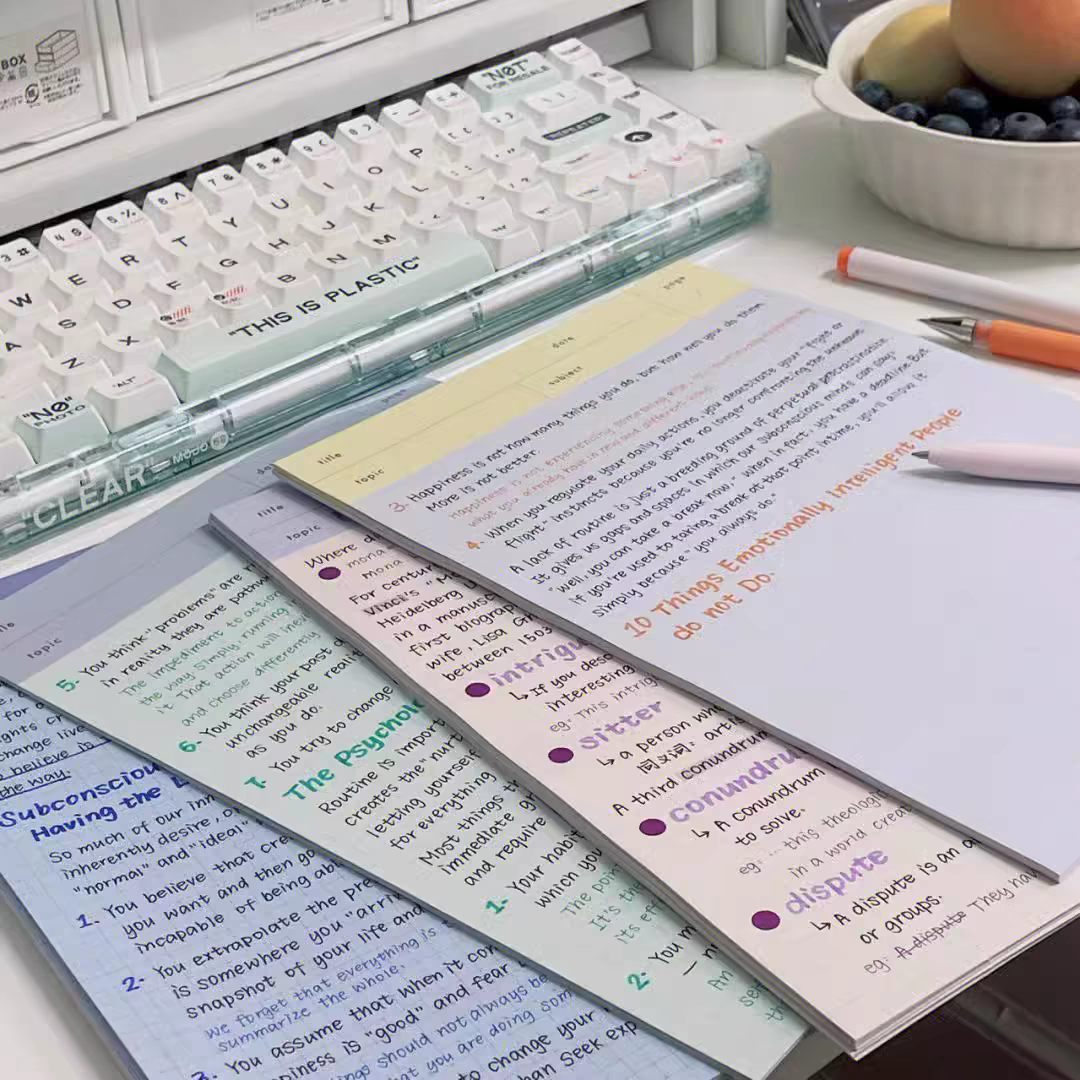 BOX
"NØT"
FOR RESALE
REPEATER
3 #
4 $
5 %
6 ^
7 &
8 *
9 (
0 )
W E R T Y U I O P
A S D F G H J K L
Z X B N M
"ALT"
"THIS IS PLASTIC"
"NØ"
PHOTO
"CLEAR"
MOOD 65
page
date
subject
title
topic
3. Happiness is not how many things you do, but how well you do them
More is not better.
happiness is not experiencing something else,
what you already have in new and different ways.
4. When you regulate your daily actions, you deactivate your "fight or
flight" instincts because you're no longer confronting the unknown.
A lack of routine is just a breeding ground of perpetual procrastination
It gives us gaps and spaces in which our subconscious minds can say:
"well, you can take a break now," when in fact, you have a deadline. But
if you're used to taking a break at that point in time, you'll allow it
simply because "you always do."
10 Things Emotionally Intelligent People
do not Do.
title
topic
Where d
mona
Mona
For centur
Vinci's "M
Heidelberg U
in a manusc
first biograp
wife, Lisa G
between 1503
intrigu
↳ If you des
interesting
eg: This intrig
sitter
↳ a person wh
同义词: artis
A third conundrum
conundru
↳ A conundrum
to solve.
eg: ... this theologi
in a world crea
dispute
↳ A dispute is an a
or groups.
eg: A dispute They hav
topic
5. You think "problems" are r
in reality they are pathw
The impediment to action
the way. Simply, running
it. That action will inev
and choose differently
6. You think your past d
unchangeable realit
as you do.
7. You try to change
The Psychol
Routine is import
creates the "nurt
letting yourself
for everything
Most things t
immediate gr
and require
1. Your habit
which you
The poin
It's the
its eff
2. You m
— n
An
ser
th
ghts cr
change live
believe in
the way.
Subconsciou
Having the L
So much of our inn
inherently desire, o
"normal" and "ideal"
1. You believe that cre
you want and then go
incapable of being abl
2. You extrapolate the pre
is somewhere you "arri
snapshot of your life and
we forget that everything is
summarize the whole.
3. You assume that when it co
ppiness is "good" and fear
ings should not always be
hat you are doing som
to change your
han Seek exp